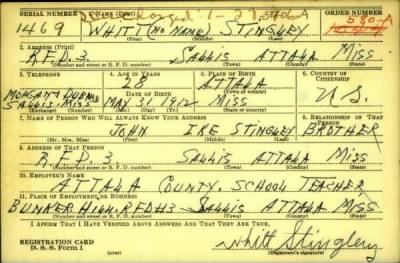 SERIAL NUMBER 1. NAME (Print) ORDER NUMBER
1469 WHITT (NO NAME) STINGLEY 580-A
2. ADDRESS (Print)
R.F.D. 3. SALLIS ATTALA MISS
(Number and street or R. F. D. number) (Town) (County) (State)
3. TELEPHONE 4. AGE IN YEARS 5. PLACE OF BIRTH 6. COUNTRY OF CITIZENSHIP
28 ATTALA
SALLIS MISS DATE OF BIRTH
MAY 31 1912 MISS U.S.
(Exchange) (Number) (Mo.) (Day) (Yr.) (State or country)
7. NAME OF PERSON WHO WILL ALWAYS KNOW YOUR ADDRESS 8. RELATIONSHIP OF THAT PERSON
JOHN IKE STINGLEY BROTHER
(Mr., Mrs., Miss) (First) (Middle) (Last)
9. ADDRESS OF THAT PERSON
R.F.D. 3. SALLIS ATTALA MISS
(Number and street or R. F. D. number) (Town) (County) (State)
10. EMPLOYER'S NAME
ATTALA COUNTY. SCHOOL TEACHER
11. PLACE OF EMPLOYMENT OR BUSINESS
BUNKER HILL. R.F.D #3 SALLIS ATTALA MISS
(Number and street or R. F. D. number) (Town) (County) (State)
I AFFIRM THAT I HAVE VERIFIED ABOVE ANSWERS AND THAT THEY ARE TRUE.
REGISTRATION CARD
D. S. S. Form 1 Whitt Stingley
(Registrant's signature)